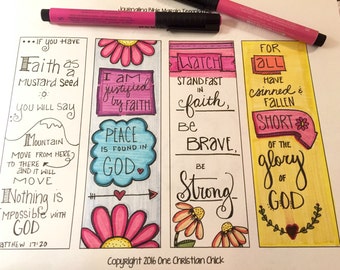 Journaling Bible Margin
...IF YOU HAVE
Faith as a
MUSTARD SEED
YOU WILL SAY
MOUNTAIN
MOVE FROM HERE
TO THERE
AND IT WILL
MOVE
Nothing is
Impossible with
GOD
MATTHEW 17:20
I AM
justified
by FAITH
PEACE
IS FOUND IN
GOD.
WATCH
STAND FAST
IN
faith,
BE
BRAVE,
BE
Strong.
FOR
ALL
HAVE
sinned &
FALLEN
SHORT
OF the
glory
OF
GOD
Copyright 2016 One Christian Chick